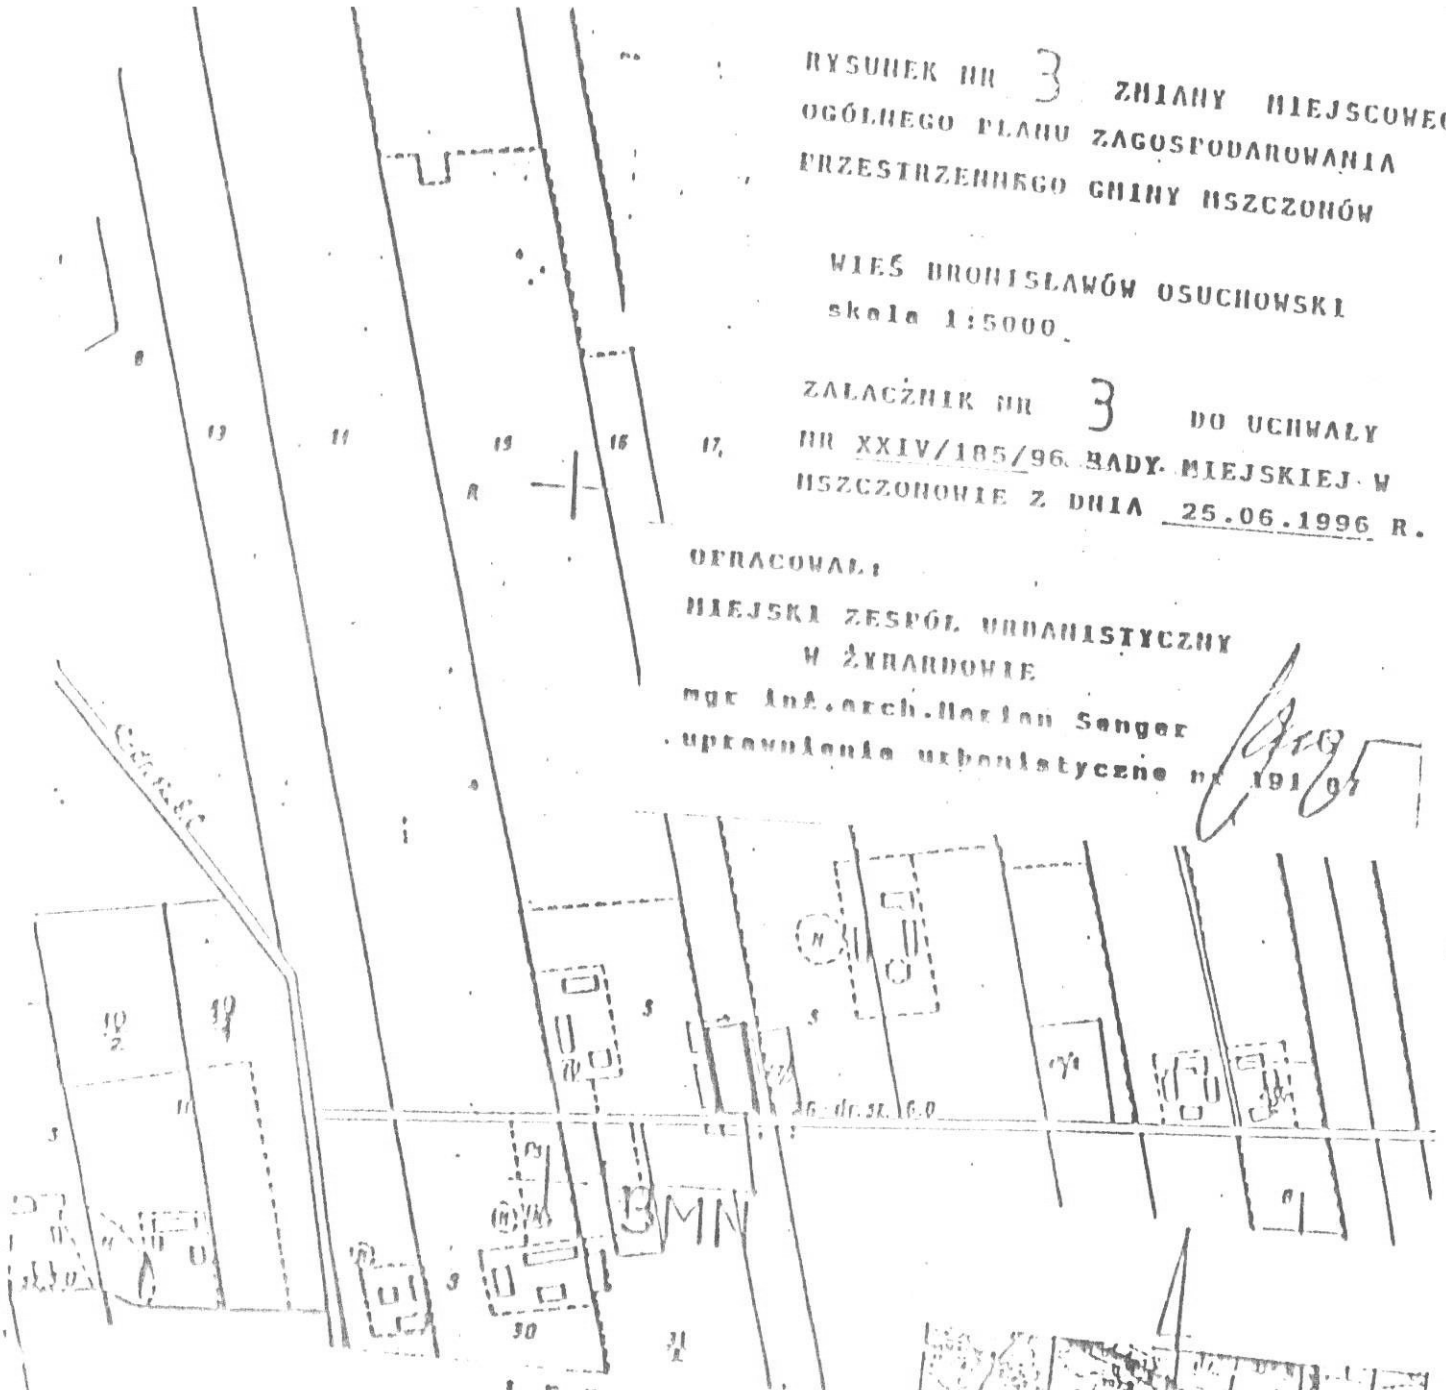 RYSUNEK NR 3 ZMIANY MIEJSCOWEG
OGÓLNEGO PLANU ZAGOSPODAROWANIA
PRZESTRZENNEGO GMINY MSZCZONÓW
WIEŚ BRONISŁAWÓW OSUCHOWSKI
skala 1:5000.
ZAŁĄCZNIK NR 3 DO UCHWAŁY
NR XXIV/185/96 RADY MIEJSKIEJ W
MSZCZONOWIE Z DNIA 25.06.1996 R.
OPRACOWAŁ:
MIEJSKI ZESPÓŁ URBANISTYCZNY
W ŻYRARDOWIE
mgr inż.arch.Marian Senger
uprawnienia urbanistyczne nr 191 87
8
13
11
15
16
17
R
10
2
S
S
S
G-dr.sz. 6.0
BMN
Ps
9
30